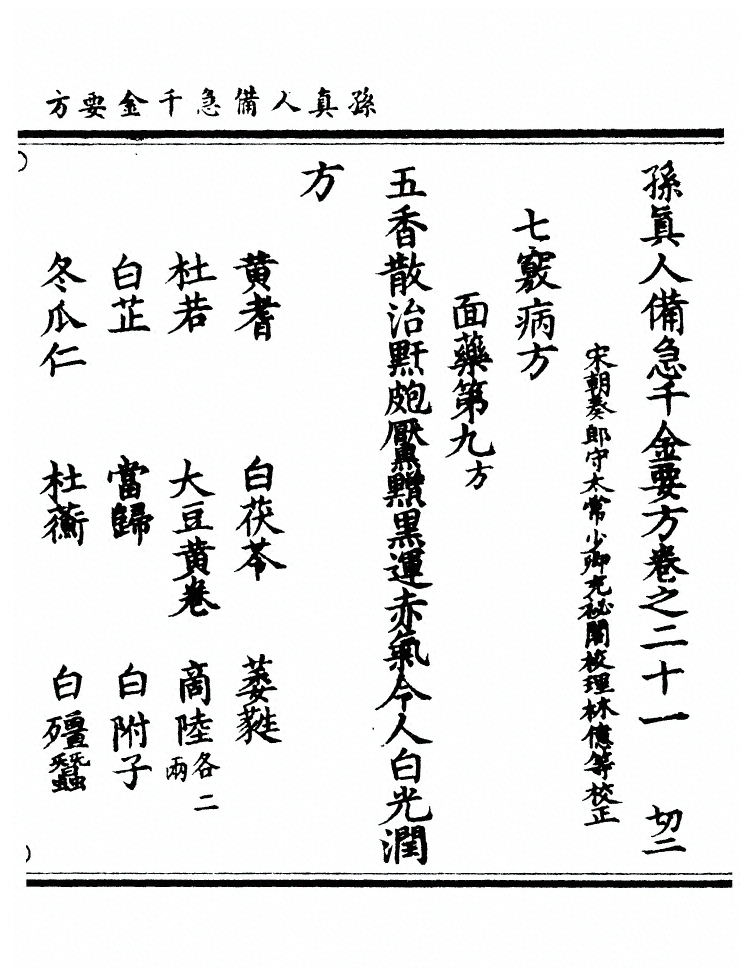 孫真人備急千金要方
孫真人備急千金要方卷之二十一 切二
宋朝奏郎守太常少卿充祕閣校理林億等校正
七竅病方
面藥第九方
五香散治䵟皰黶黯黑運赤氣令人白光潤
方
黄耆 白茯苓 萎蕤
杜若 大豆黄卷 商陸各二兩
白芷 當歸 白附子
冬瓜仁 杜蘅 白殭蠶